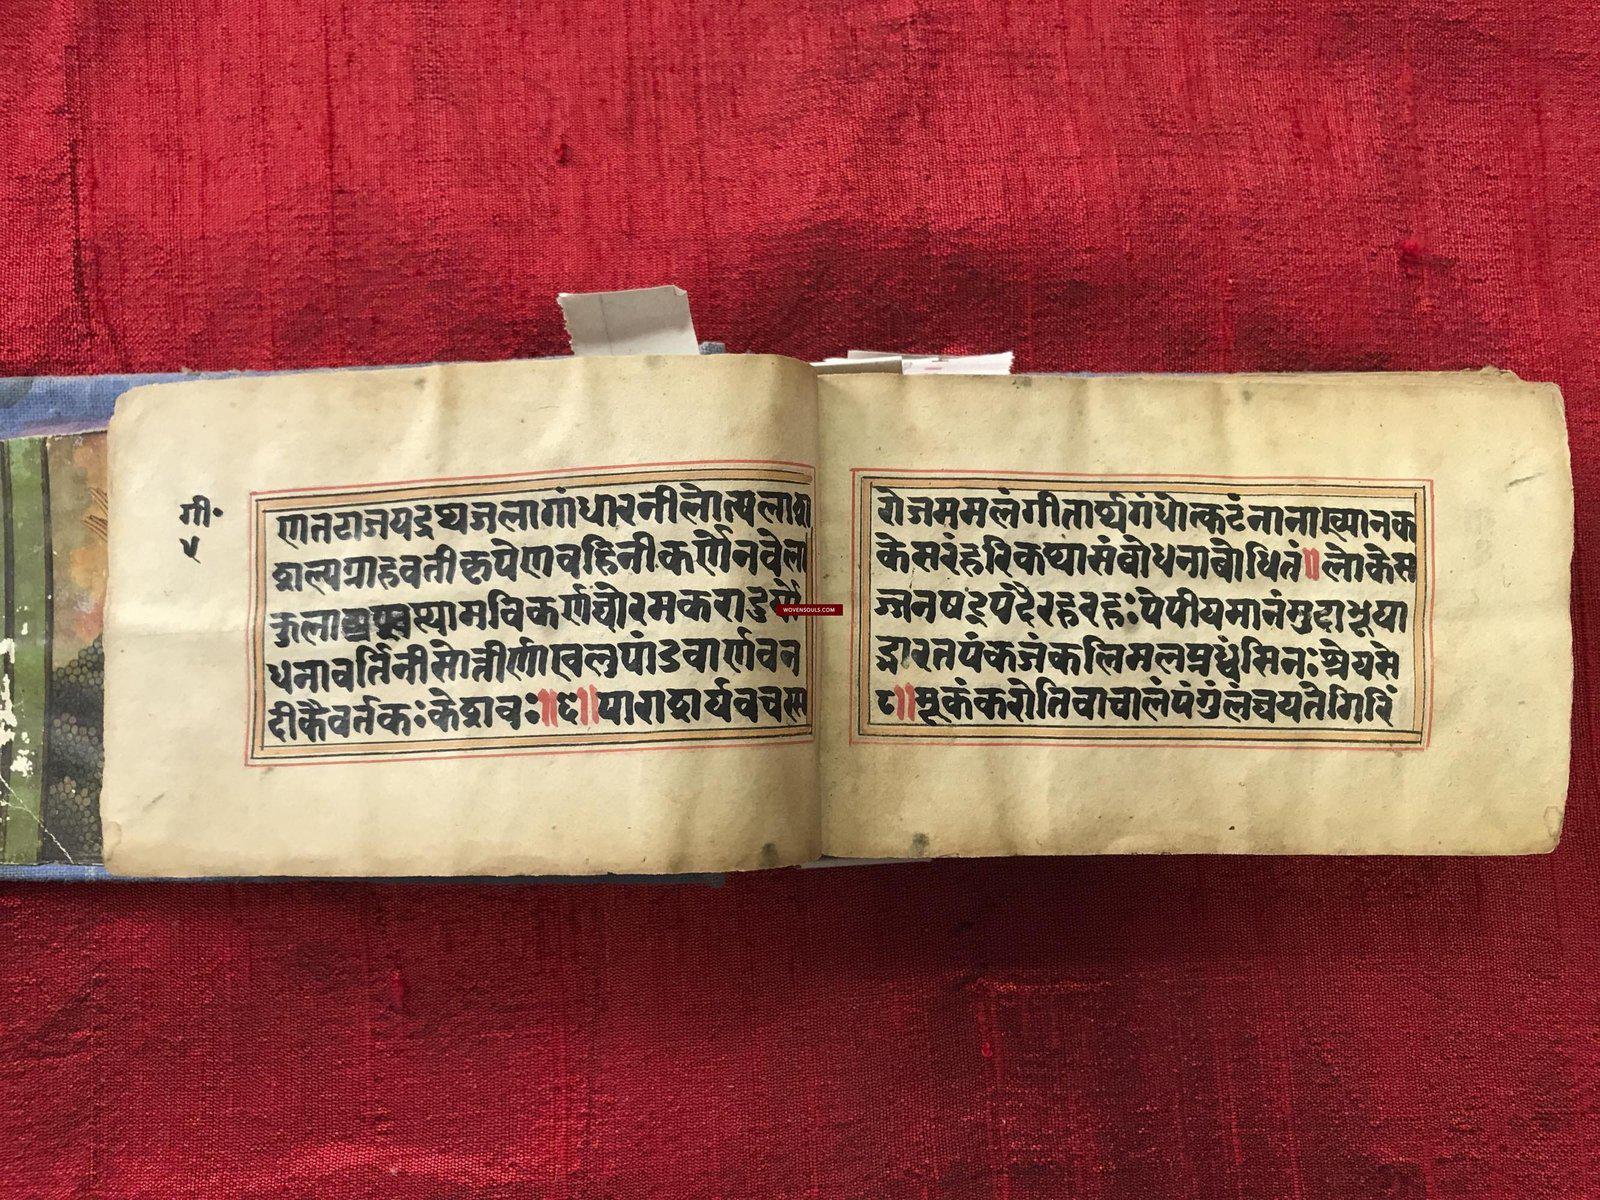 गी॰
५
णातटाजयद्रथजलागांधारनीलोत्पलाश
ल्यग्राहवतीकृपेणवहिनीकर्णेनवेला
कुलाअश्वत्थामविकर्णघोरमकरादुर्यो
धनावर्तिनीसोत्तीर्णाखलुपांडवार्णवन
दीकैवर्तकःकेशवः॥६॥पाराशर्यवचस्स
रोजसममलंगीतार्थगंधोत्कटंनानाख्यानक
केसरंहरिकथासंबोधनाबोधितं॥लोकेस
ज्जनषट्पदैरहरहःपेपीयमानंमुदाभूया
द्भारतपंकजंकलिमलप्रध्वंसिनःश्रेयसे
८॥मूकंकरोतिवाचालंपंगुंलङ्घयतेगिरिं
WOVENSOULS.COM